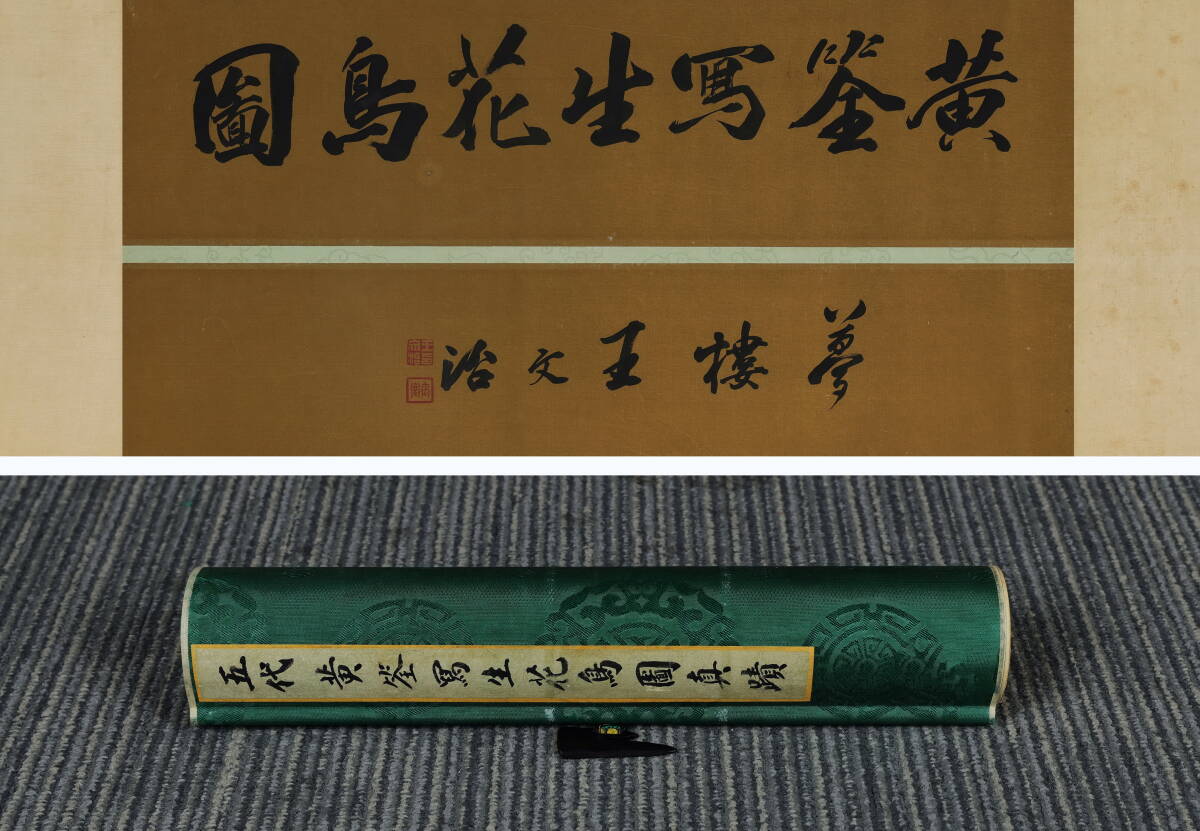 黄筌寫生花鳥圖
夢樓王文治
五代黄筌寫生花鳥圖真蹟